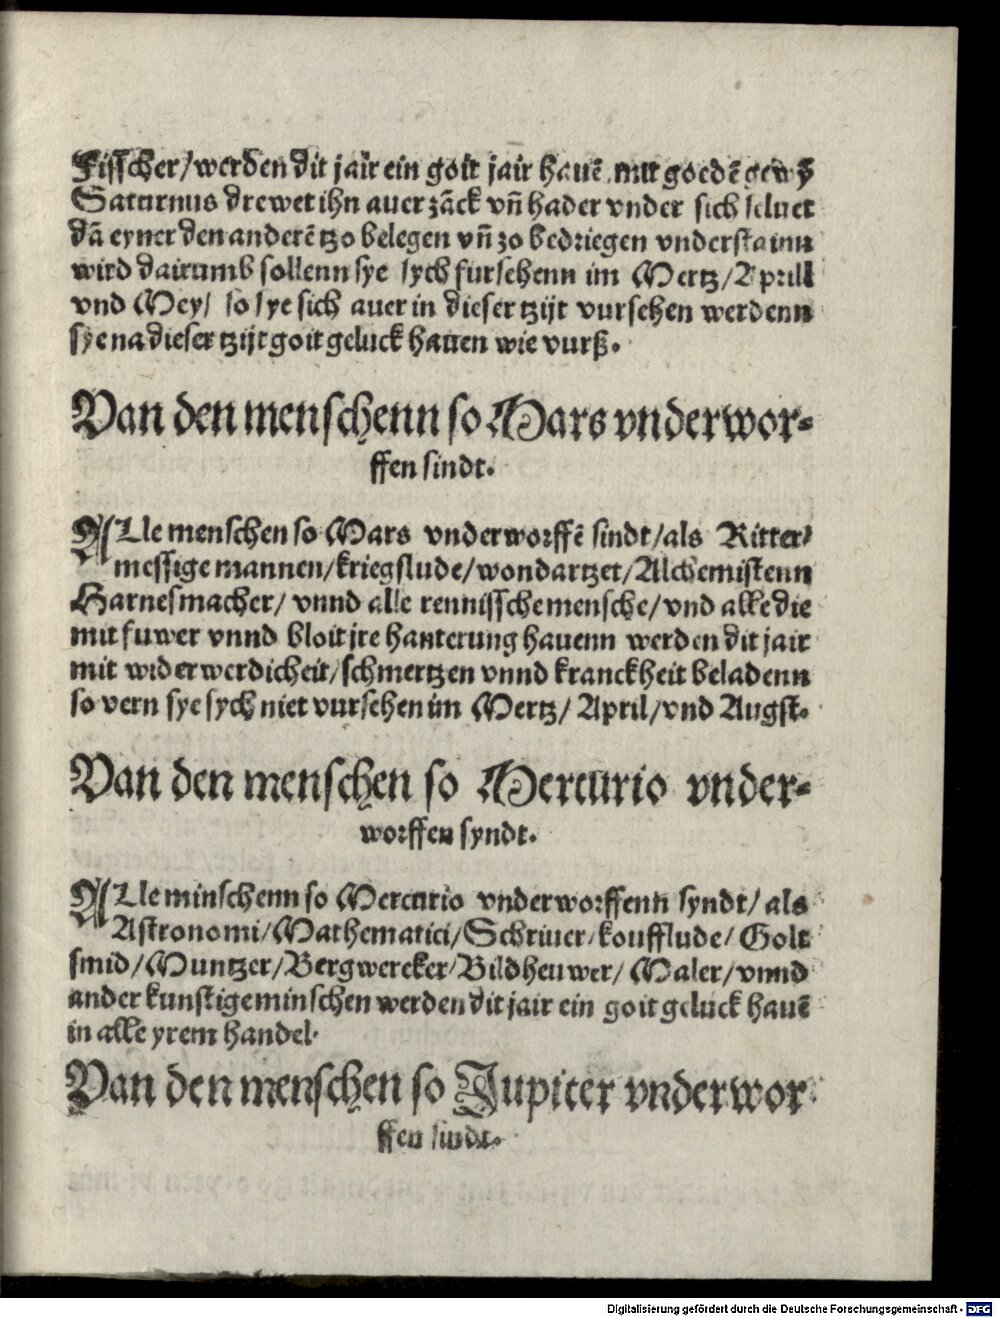 Fisscher/werden dit jair ein goit jair hauē mit goedē
Saturnus drewet ihn auer zāck vñ hader vnder sich seluet
dā eyner den anderē tzo belegen vñ zo bedriegen vnderstainn
wird dairumb sollenn sye sych fursehenn im Mertz/Aprill
vnd Mey/ so sye sich auer in dieser tzijt vursehen werdenn
sye na dieser tzijt goit geluck hauen wie vurß.
Van den menschenn so Mars vnderwor-
ffen sindt.
ALle menschen so Mars vnderworffē sindt/als Ritter/
messige mannen/kriegslude/wondartzet/Alchemistenn
Harnesmacher/ vnnd alle rennissche mensche/vnd alle die
mit fuwer vnnd bloit jre hanterung hauenn werden dit jair
mit widerwerdicheit/schmertzen vnnd kranckheit beladenn
so vern sye sych niet vursehen im Mertz/ April/vnd Augst.
Van den menschen so Mercurio vnder-
worffen syndt.
ALle minschenn so Mercurio vnderworffenn syndt/ als
Astronomi/Mathematici/Schriuer/koufflude/ Golt
smid/Muntzer/Bergwercker/Bildheuwer/ Maler/vnnd
ander kunstige minschen werden dit jair ein goit geluck hauē
in alle yrem handel.
Van den menschen so Jupiter vnderwor-
ffen sindt.
Digitalisierung gefördert durch die Deutsche Forschungsgemeinschaft - DFG